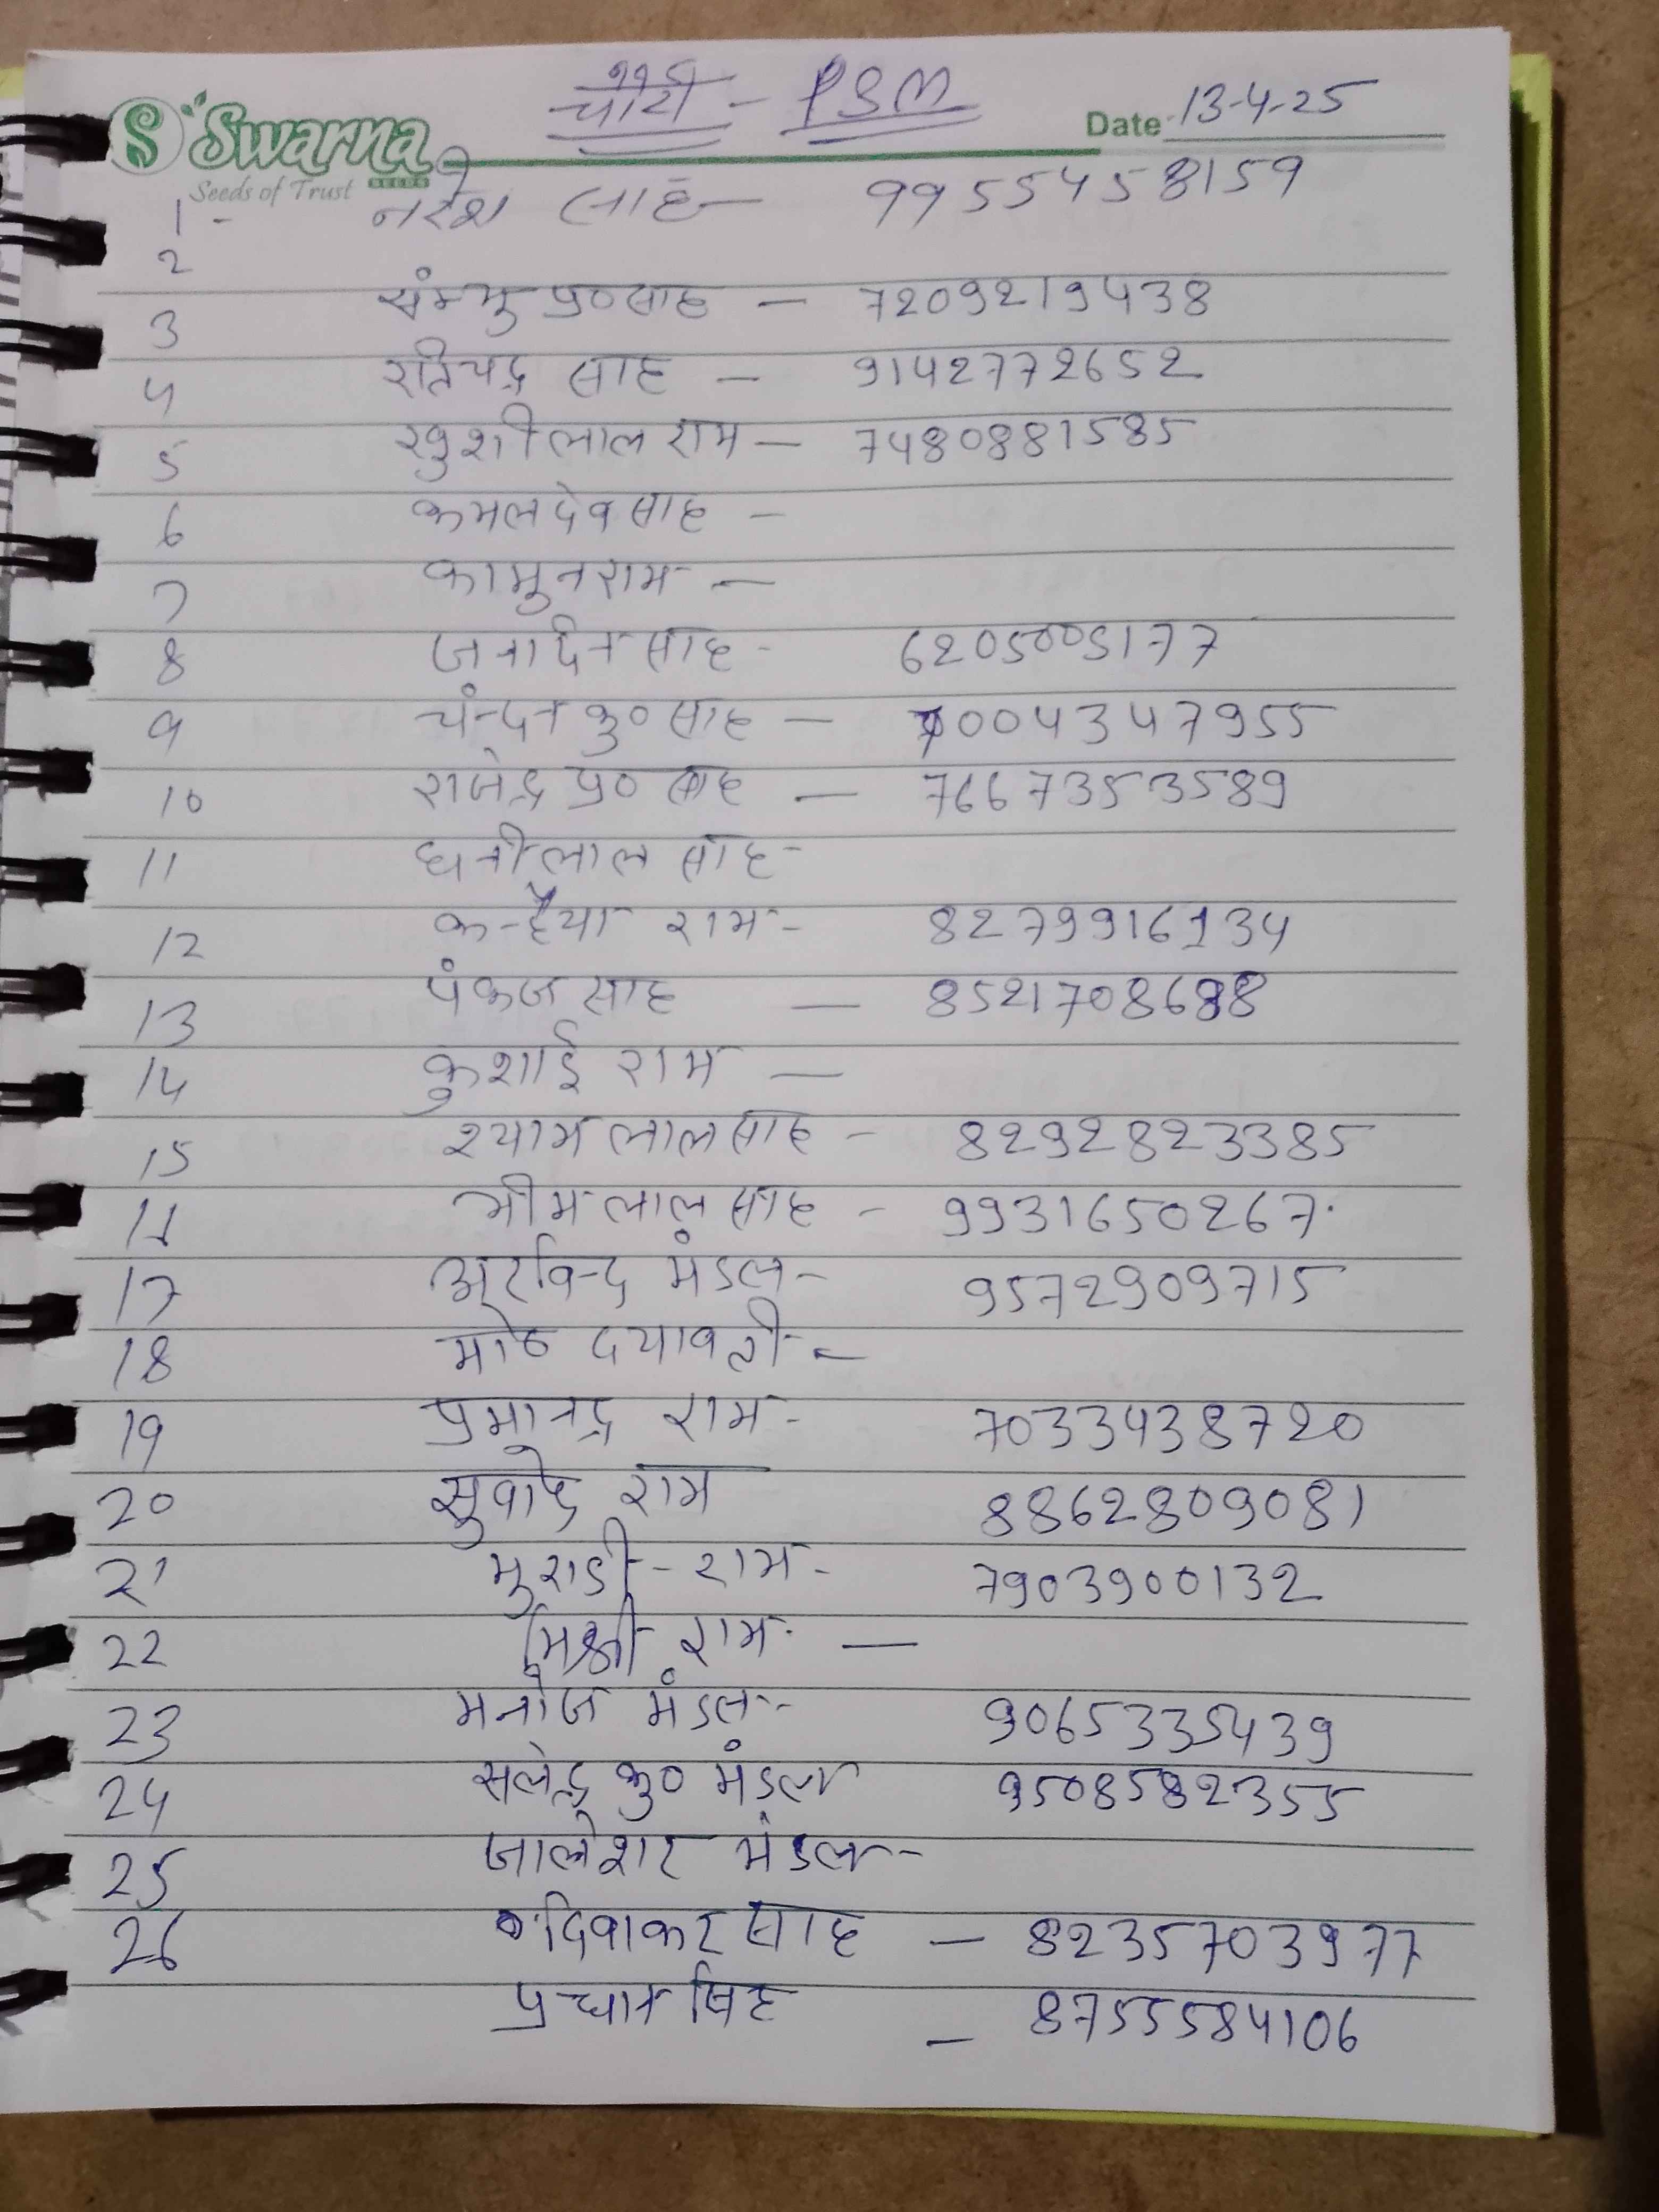 चोरी - PSM
Swarna
SEEDS
Seeds of Trust
Date 13-4-25
1- नरेश साह 9955458159
2 संम्भु प्र० साह - 7209219438
3 रविचंद्र साह - 9142772652
4 खुशीलाल राम - 7480881585
5 कमलदेव साह -
6 कामुन राम -
7 जनार्दन साह - 6205005177
8 चंन्दन कु० साह - 7004347955
9 राजेन्द्र प्र० साह - 7667353589
10 धनीलाल साह -
11 कन्हैया राम - 8279916134
12 पंकज साह - 8521708688
13 कुशाई राम -
14 श्याम लाल साह - 8292823385
15 भीम लाल साह - 9931650267
16 अरविन्द मंडल - 9572909715
17 मो० दयावती -
18 प्रमानन्द राम - 7033438720
19 सुवोध राम 8862809081
20 मुराडी - राम - 7903900132
21 मिश्री राम -
22 मनोज मंडल - 9065335439
23 सलेन्द्र कु० मंडल 9508582355
24 जालेशर मंडल -
25 दिवाकर साह - 8235703977
26 प्रधान सिंह - 8755584106